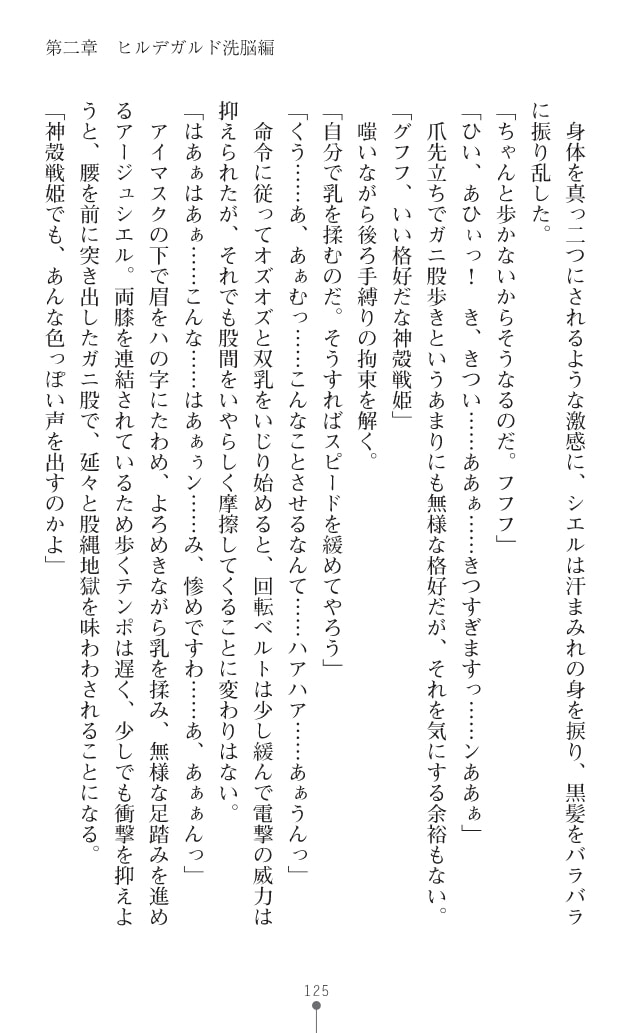 第二章　ヒルデガルド洗脳編
　身体を真っ二つにされるような激感に、シエルは汗まみれの身を捩り、黒髪をバラバラ
に振り乱した。
「ちゃんと歩かないからそうなるのだ。フフフ」
「ひい、あひぃっ！　き、きつい……ああぁ……きつすぎますっ……ンああぁ」
　爪先立ちでガニ股歩きというあまりにも無様な格好だが、それを気にする余裕もない。
「グフフ、いい格好だな神殻戦姫」
　嗤いながら後ろ手縛りの拘束を解く。
「自分で乳を揉むのだ。そうすればスピードを緩めてやろう」
「くう……あ、あぁむっ……こんなことさせるなんて……ハアハア……あぁうんっ」
　命令に従ってオズオズと双乳をいじり始めると、回転ベルトは少し緩んで電撃の威力は
抑えられたが、それでも股間をいやらしく摩擦してくることに変わりはない。
「はあぁはあぁ……こんな……はあぁぅン……み、惨めですわ……あ、あぁぁんっ」
　アイマスクの下で眉をハの字にたわめ、よろめきながら乳を揉み、無様な足踏みを進め
るアージュシエル。両膝を連結されているため歩くテンポは遅く、少しでも衝撃を抑えよ
うと、腰を前に突き出したガニ股で、延々と股縄地獄を味わわされることになる。
「神殻戦姫でも、あんな色っぽい声を出すのかよ」
125